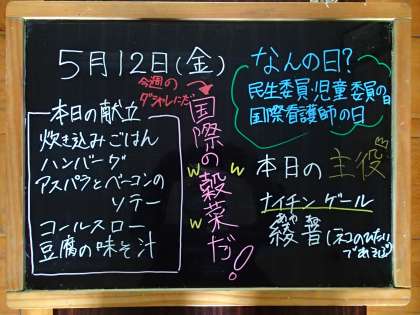 5月12日(金)
今週の
ダジャレにだ
国際の穀菜だ!
w w
w
本日の献立
炊き込みごはん
ハンバーグ
アスパラとベーコンの
ソテー
コールスロー
豆腐の味そ汁
なんの日?
民生委員・児童委員の日
国際看護師の日
本日の主役
ナイチンゲール
あや
綾
(ネコのひたい
であそぼ)